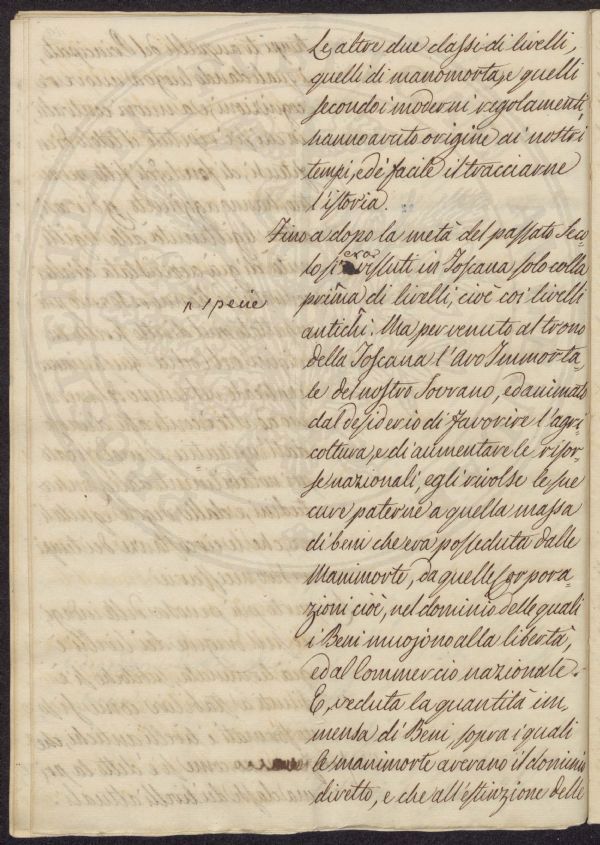 Le altre due classi di livelli,
quelli di manomorta, e quelli
secondo i moderni regolamenti,
hanno avuto origine ai nostri
tempi, ed è facile il tracciarne
l'istoria.
Fino a dopo la metà del passato Seco-
lo si era vissuti in Toscana solo colla
prima di livelli, cioè coi livelli
specie
antichi. Ma pervenuto al trono
della Toscana l'Avo Immorta-
le del nostro Sovrano, ed animato
dal desiderio di favorire l'agri-
coltura, e di aumentare le risor-
se nazionali, egli rivolse le sue
cure paterne a quella massa
di beni che era posseduta dalle
Manimorte, da quelle Corpora-
zioni cioè, nel dominio delle quali
i Beni muojono alla libertà,
ed al Commercio nazionale.
E, veduta la quantità im-
mensa di Beni, sopra i quali
le manimorte avevano il dominio
diretto, e che all'estinzione delle